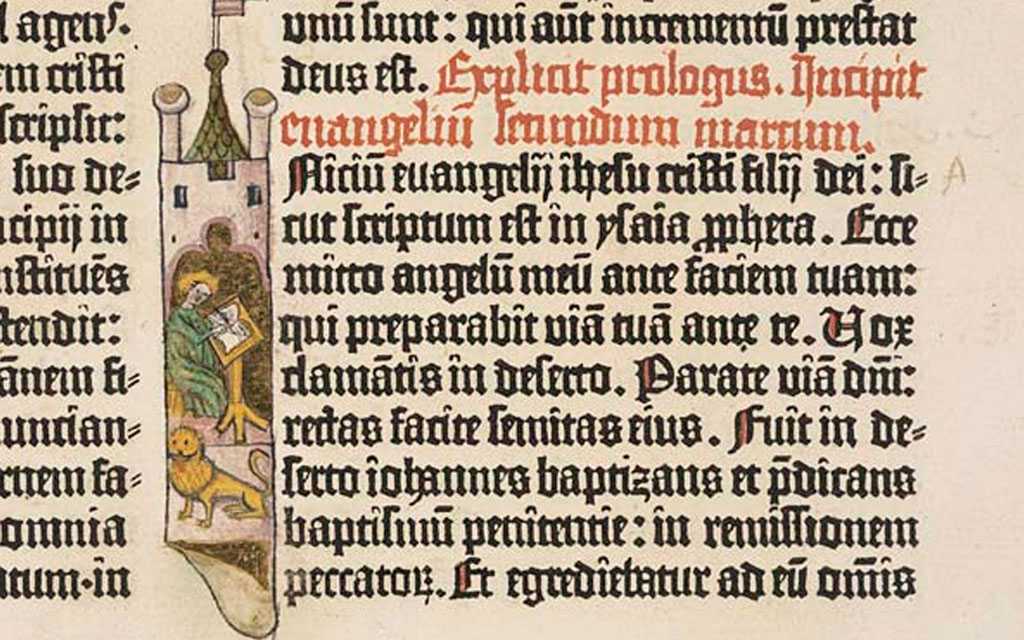 l agens.
em cristi
scripsit:
suo de-
incipij in
instituēs
stendit:
ānem fi-
nuncian-
rnem fa-
omnia
utum·in
unū sunt: qui aūt incrementū prestat
deus est. Explicit prologus. Incipit
euangeliū secundum marcum.
Niciū euangelij ihesu cristi filij dei: si-
cut scriptum est in ysaia ꝓpheta. Ecce
mitto angelū meū ante faciem tuam:
qui preparabit viā tuā ante te. Vox
clamātis in deserto. Parate viā dn̄i:
rectas facite semitas eius. Fuit in de-
serto iohannes baptizans et p̄dicans
baptismū penitentie: in remissionem
peccatoꝝ. Et egrediebatur ad eū om̄is
A